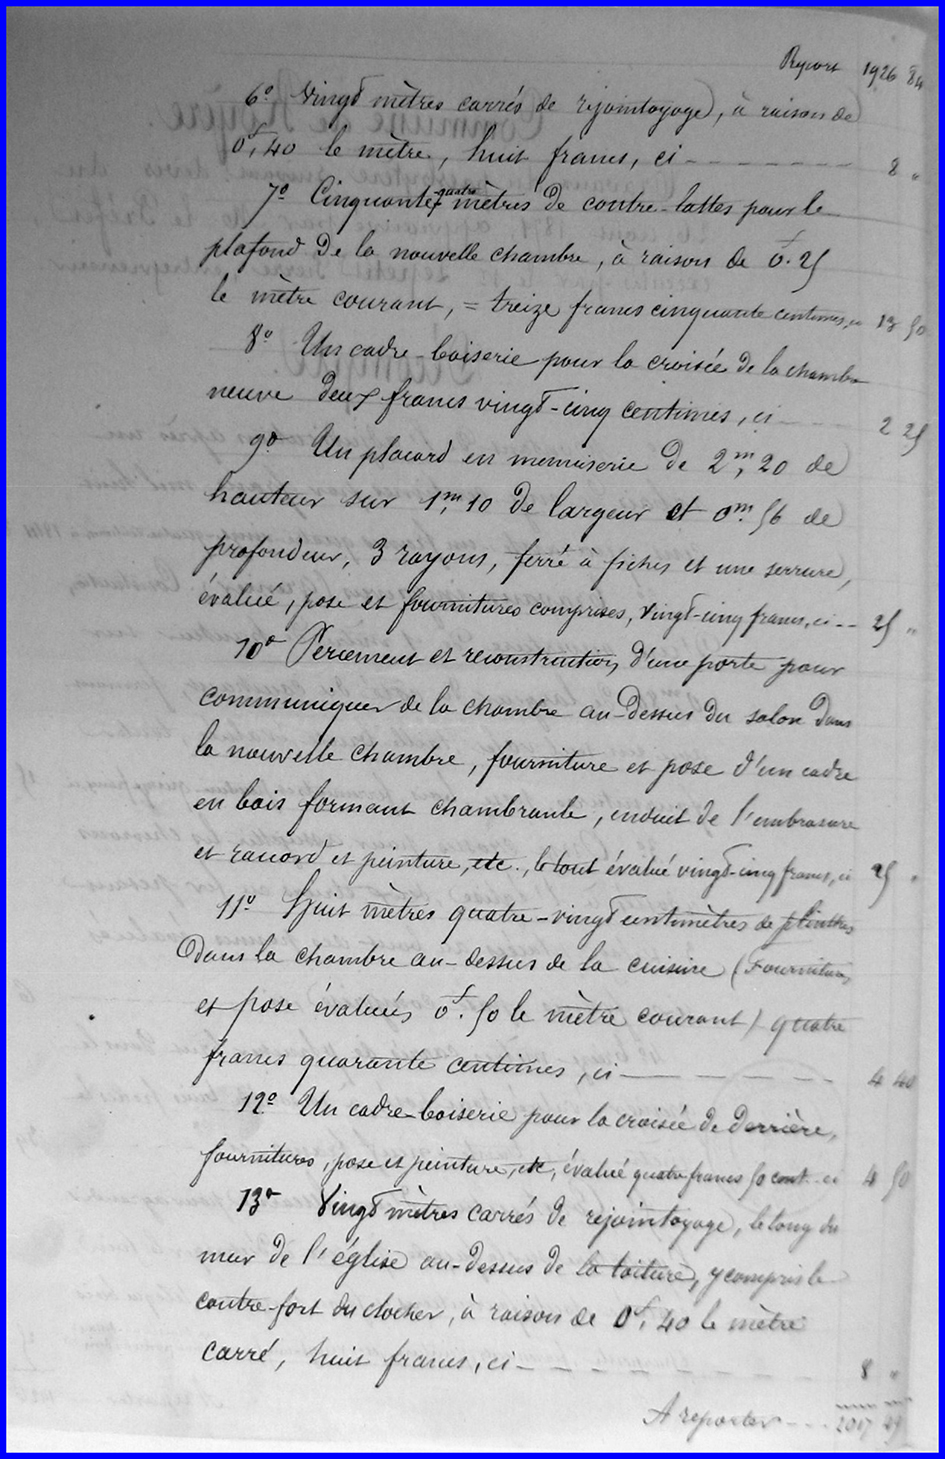 Report 1926 84
6º Vingt mètres carrés de rejointoyage, à raison de
0f,40 le mètre, huit francs, ci - - - - - - 8 "
7º Cinquante-quatre mètres de contre-lattes pour le
plafond de la nouvelle chambre, à raison de 0f.25
le mètre courant, = treize francs cinquante centimes, ci 13 50
8º Un cadre-boiserie pour la croisée de la chambre
neuve deux francs vingt-cinq centimes, ci - - - - 2 25
9º Un placard en menuiserie de 2m,20 de
hauteur sur 1m,10 de largeur et 0m.56 de
profondeur, 3 rayons, ferré à fiches et une serrure,
évalué, pose et fournitures comprises, vingt-cinq francs, ci - - 25 "
10º Percement et reconstruction d'une porte pour
communiquer de la chambre au-dessus du salon dans
la nouvelle chambre, fourniture et pose d'un cadre
en bois formant chambranle, enduit de l'embrasure
et raccord et peinture, etc., le tout évalué vingt-cinq francs, ci 25 "
11º Huit mètres quatre-vingt centimètres de plinthes
dans la chambre au-dessus de la cuisine (Fournitures
et pose évalués 0f.50 le mètre courant) quatre
francs quarante centimes, ci - - - - - 4 40
12º Un cadre-boiserie pour la croisée de derrière,
fournitures, pose et peinture, etc, évalué quatre francs 50 cent. ci 4 50
13º Vingt mètres carrés de rejointoyage, le long du
mur de l'église au-dessus de la toiture, y compris le
contre-fort du clocher, à raison de 0f,40 le mètre
carré, huit francs, ci - - - - - - - 8 "
A reporter - - - 2017 49